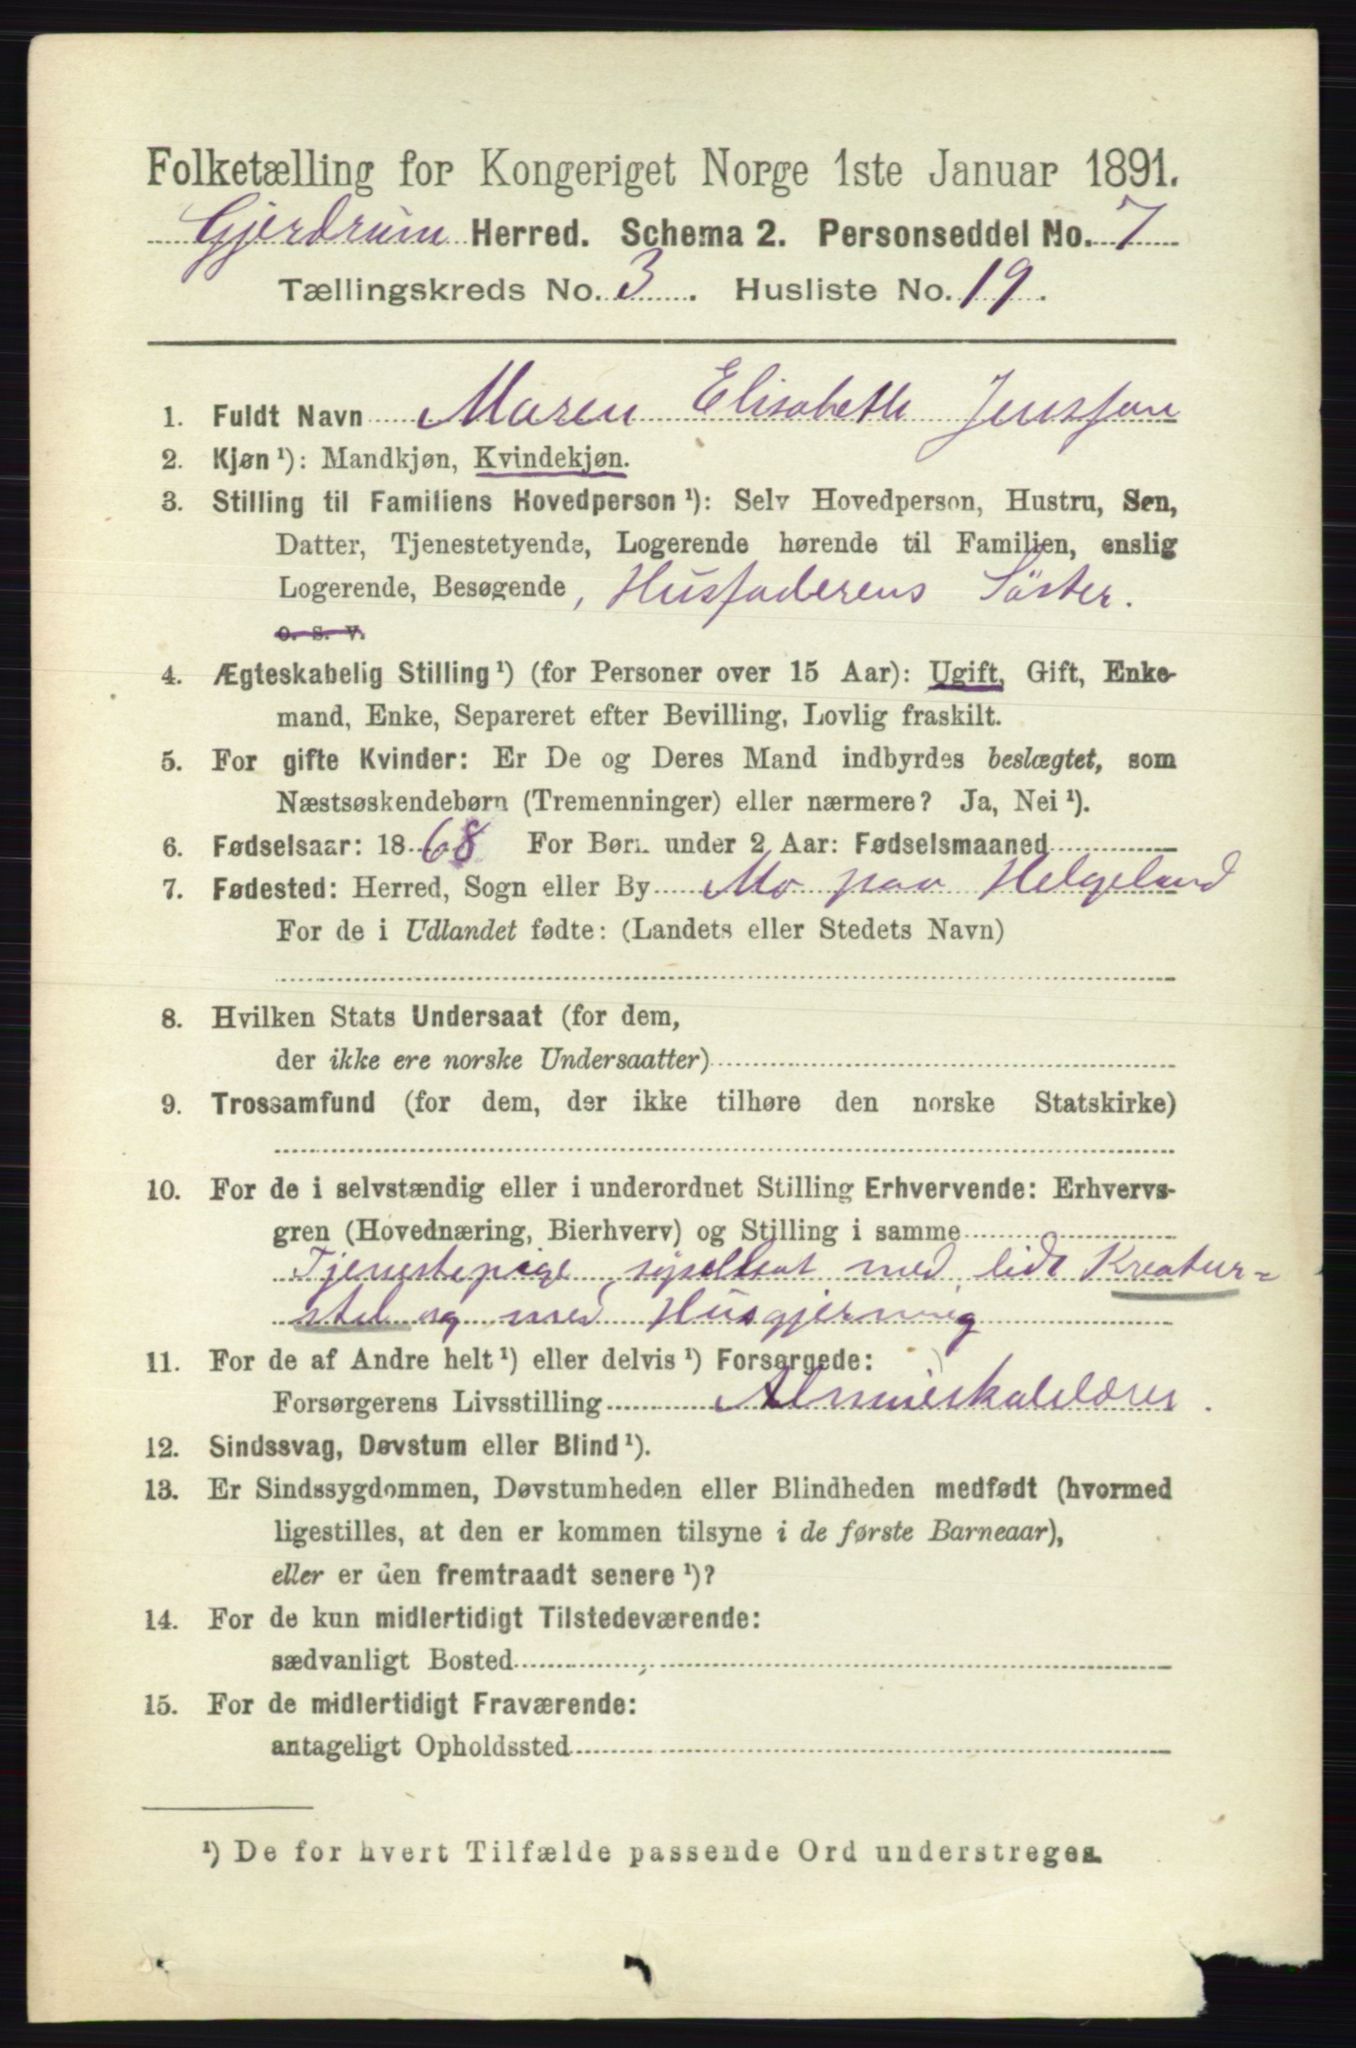 Folketælling for Kongeriget Norge 1ste Januar 1891.
Gjerdrum Herred. Schema 2. Personseddel No. 7
Tællingskreds No. 3. Husliste No. 19.
1. Fuldt Navn Maren Elisabeth Jenssen
2. Kjøn ¹): Mandkjøn, Kvindekjøn.
3. Stilling til Familiens Hovedperson ¹): Selv Hovedperson, Hustru, Søn,
Datter, Tjenestetyende, Logerende hørende til Familien, enslig
Logerende, Besøgende, Husfaderens Söster.
o. s. v.
4. Ægteskabelig Stilling ¹) (for Personer over 15 Aar): Ugift, Gift, Enke-
mand, Enke, Separeret efter Bevilling, Lovlig fraskilt.
5. For gifte Kvinder: Er De og Deres Mand indbyrdes beslægtet, som
Næstsøskendebørn (Tremenninger) eller nærmere? Ja, Nei ¹).
6. Fødselsaar: 1868 For Børn under 2 Aar: Fødselsmaaned
7. Fødested: Herred, Sogn eller By Mo paa Helgeland
For de i Udlandet fødte: (Landets eller Stedets Navn)
8. Hvilken Stats Undersaat (for dem,
der ikke ere norske Undersaatter)
9. Trossamfund (for dem, der ikke tilhøre den norske Statskirke)
10. For de i selvstændig eller i underordnet Stilling Erhvervende: Erhvervs-
gren (Hovednæring, Bierhverv) og Stilling i samme
Tjenestepige, sysselsat med lidt Kreatur-
stel og med Husgjerning
11. For de af Andre helt ¹) eller delvis ¹) Forsørgede:
Forsørgerens Livsstilling Almueskolelærer.
12. Sindssvag, Døvstum eller Blind ¹).
13. Er Sindssygdommen, Døvstumheden eller Blindheden medfødt (hvormed
ligestilles, at den er kommen tilsyne i de første Barneaar),
eller er den fremtraadt senere ¹)?
14. For de kun midlertidigt Tilstedeværende:
sædvanligt Bosted
15. For de midlertidigt Fraværende:
antageligt Opholdssted
¹) De for hvert Tilfælde passende Ord understreges.